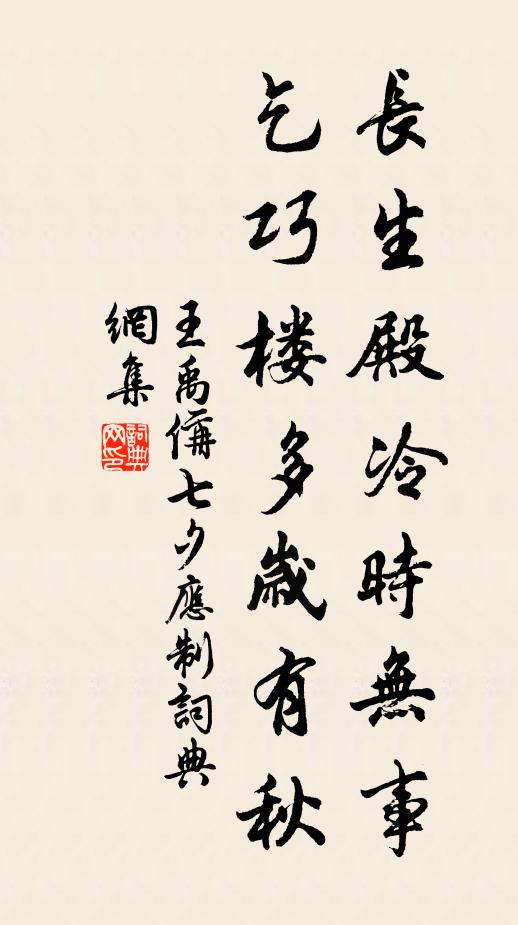 長生殿冷時無事
乞巧楼多歲有秋
王禹偁七夕應制詞典
網集
詞典
网印